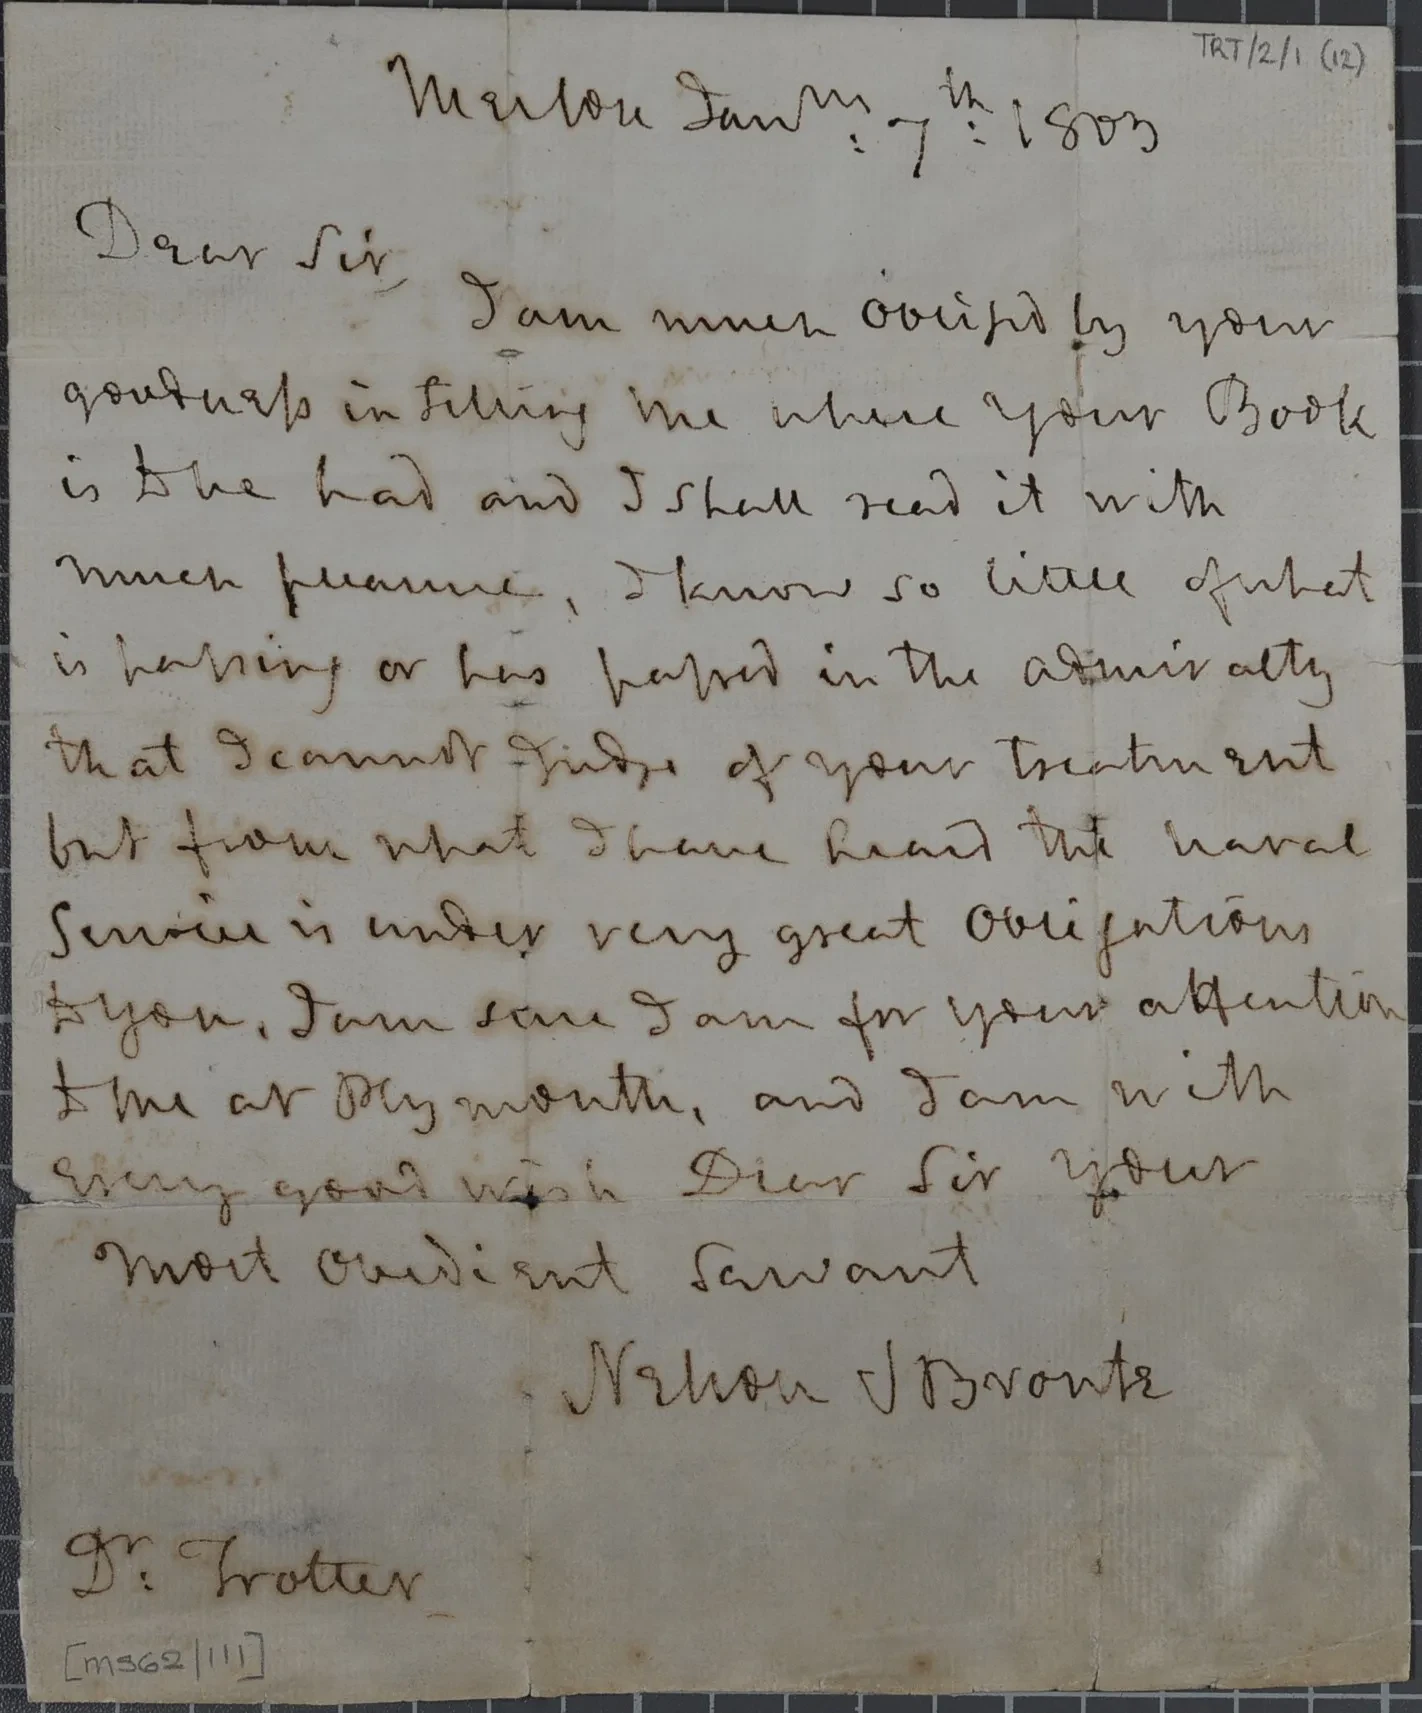 TRT/2/1 (12)
Merton Jany: 7th: 1803
Dear Sir
I am much obliged by your
goodness in telling me where your Book
is to be had and I shall read it with
much pleasure, I know so little of what
is passing or has passed in the admiralty
that I cannot Judge of your treatment
but from what I have heard the naval
Service is under very great obligations
to you, I am sure I am for your attention
to me at Plymouth, and I am with
every good wish Dear Sir your
most obedient Servant
Nelson & Bronte
Dr: Trotter
[MS62/111]